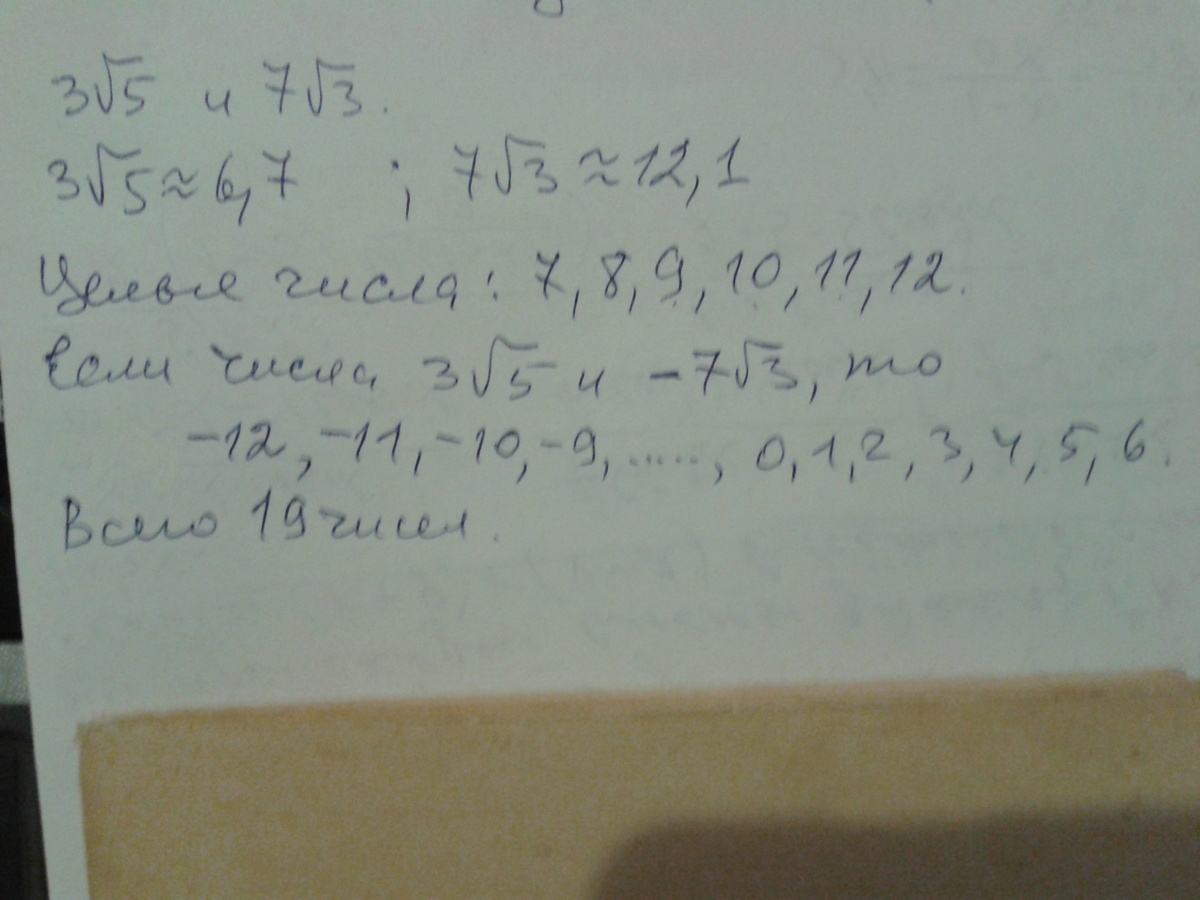 3√5 и 7√3.
3√5≈6,7 ; 7√3≈12,1
Целые числа: 7, 8, 9, 10, 11, 12.
Если числа 3√5 и -7√3, то
-12, -11, -10, -9, ....., 0, 1, 2, 3, 4, 5, 6.
Всего 19 чисел.